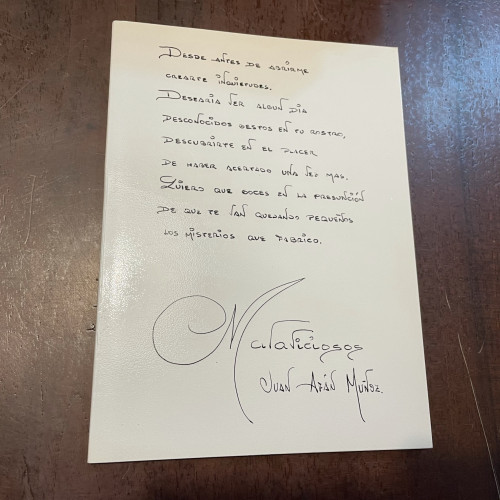 DESDE ANTES DE ABRIRME
CREARTE INQUIETUDES.
DESEARIA VER ALGUN DIA
DESCONOCIDOS GESTOS EN TU ROSTRO,
DESCUBRIRTE EN EL PLACER
DE HABER ACERTADO UNA VEZ MAS.
QUIERO QUE GOCES EN LA PRESUNCIÓN
DE QUE TE VAN QUEDANDO PEQUEÑOS
LOS MISTERIOS QUE FABRICO.
JUAN AFÁN MUÑOZ.